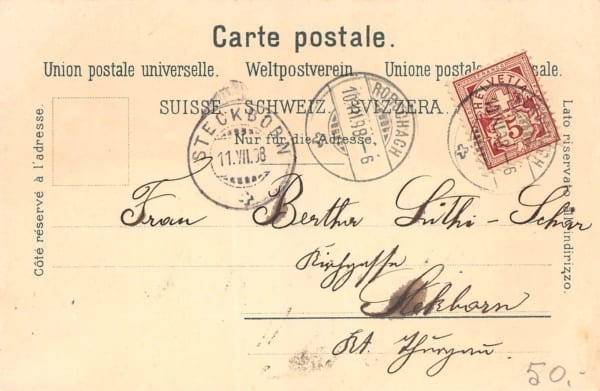 Carte postale.
Union postale universelle. Weltpostverein. Unione postale sale.
SUISSE. SCHWEIZ. SVIZZERA.
Nur für die Adresse.
Côté réservé à l'adresse.
Lato riservato all'indirizzo.
STECKBORN
11.VII.98
RORSCHACH
10.VII.98-6
HELVETIA
Frau Bertha Lüthi-Schär
Kirchgasse
Steckborn
Kt. Thurgau.
50.-